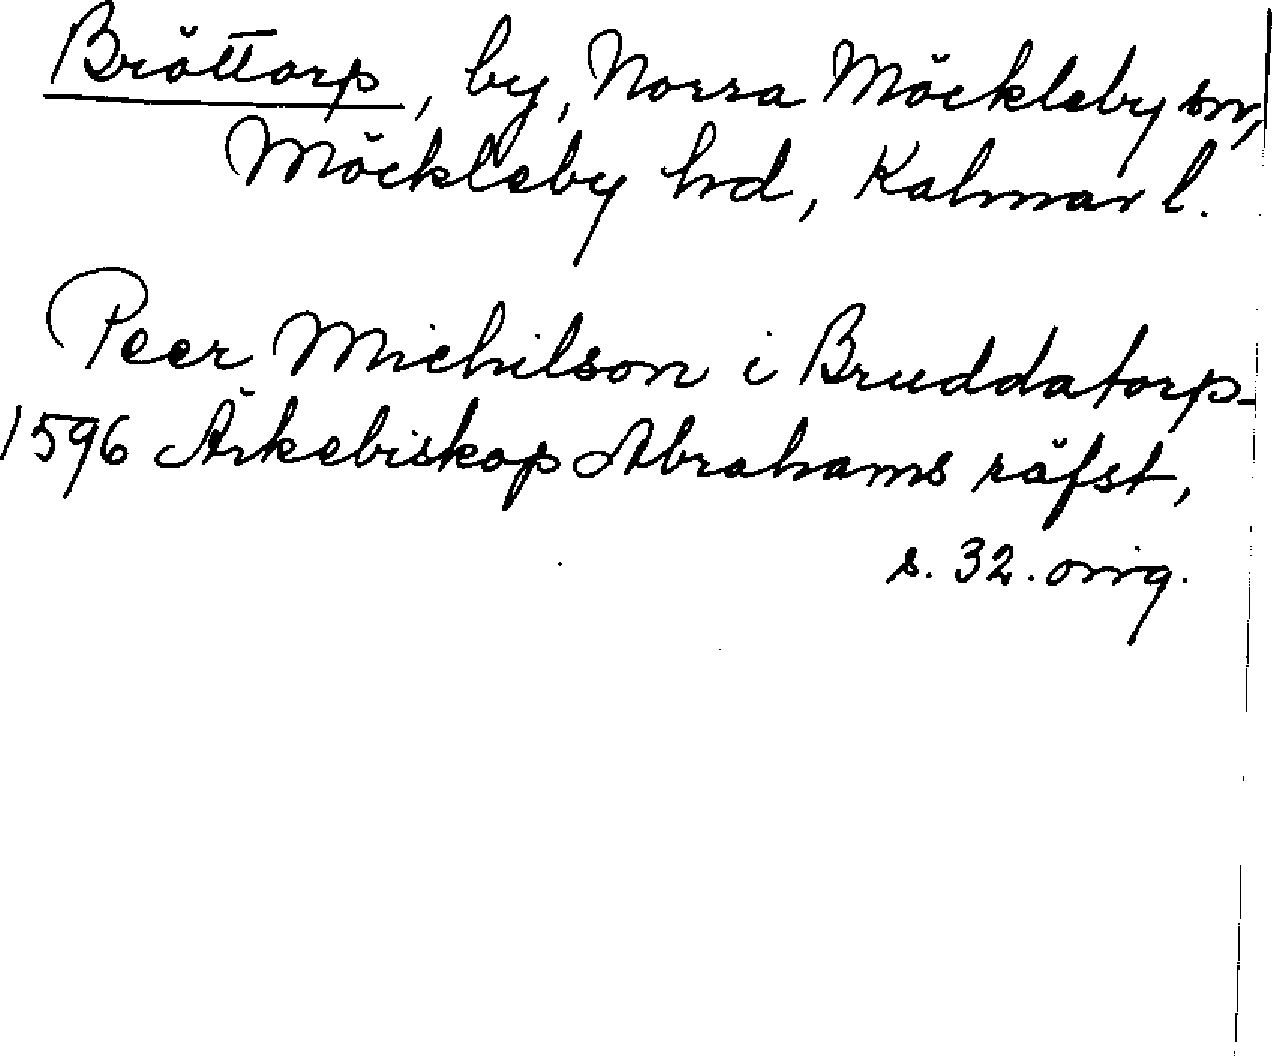 Bröttorp, by, Norra Möckleby sn,
Möckleby hd, Kalmar l.
Peer Michilson i Bruddatorp-
1596 Ärkebiskop Abrahams räfst,
s. 32. orig.